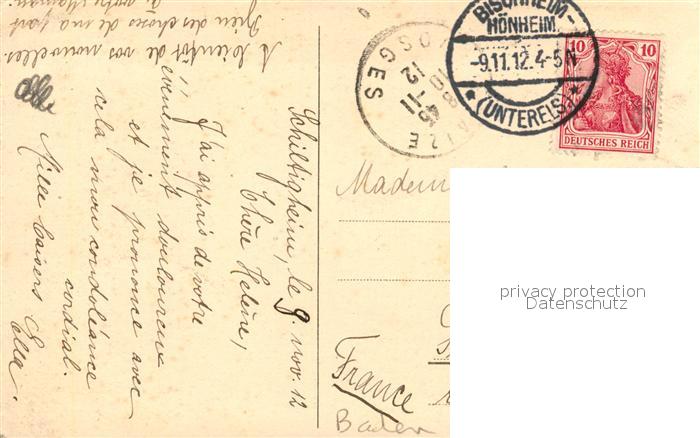 Schiltigheim, le 9. nov. 12
Chère Helène,
J'ai appris de votre
évènement douloureux
et je prononce avec
cela mon condoléance
cordial.
Mille baisers
Ella.
A bientôt de vos nouvelles.
Bien des choses de ma part
à votre Maman.
BISCHHEIM-
HÖNHEIM.
-9.11.12.4-5N.
*(UNTERELS)*
VOSGES
10 10
DEUTSCHES REICH
Madem
France
Baden
privacy protection
Datenschutz